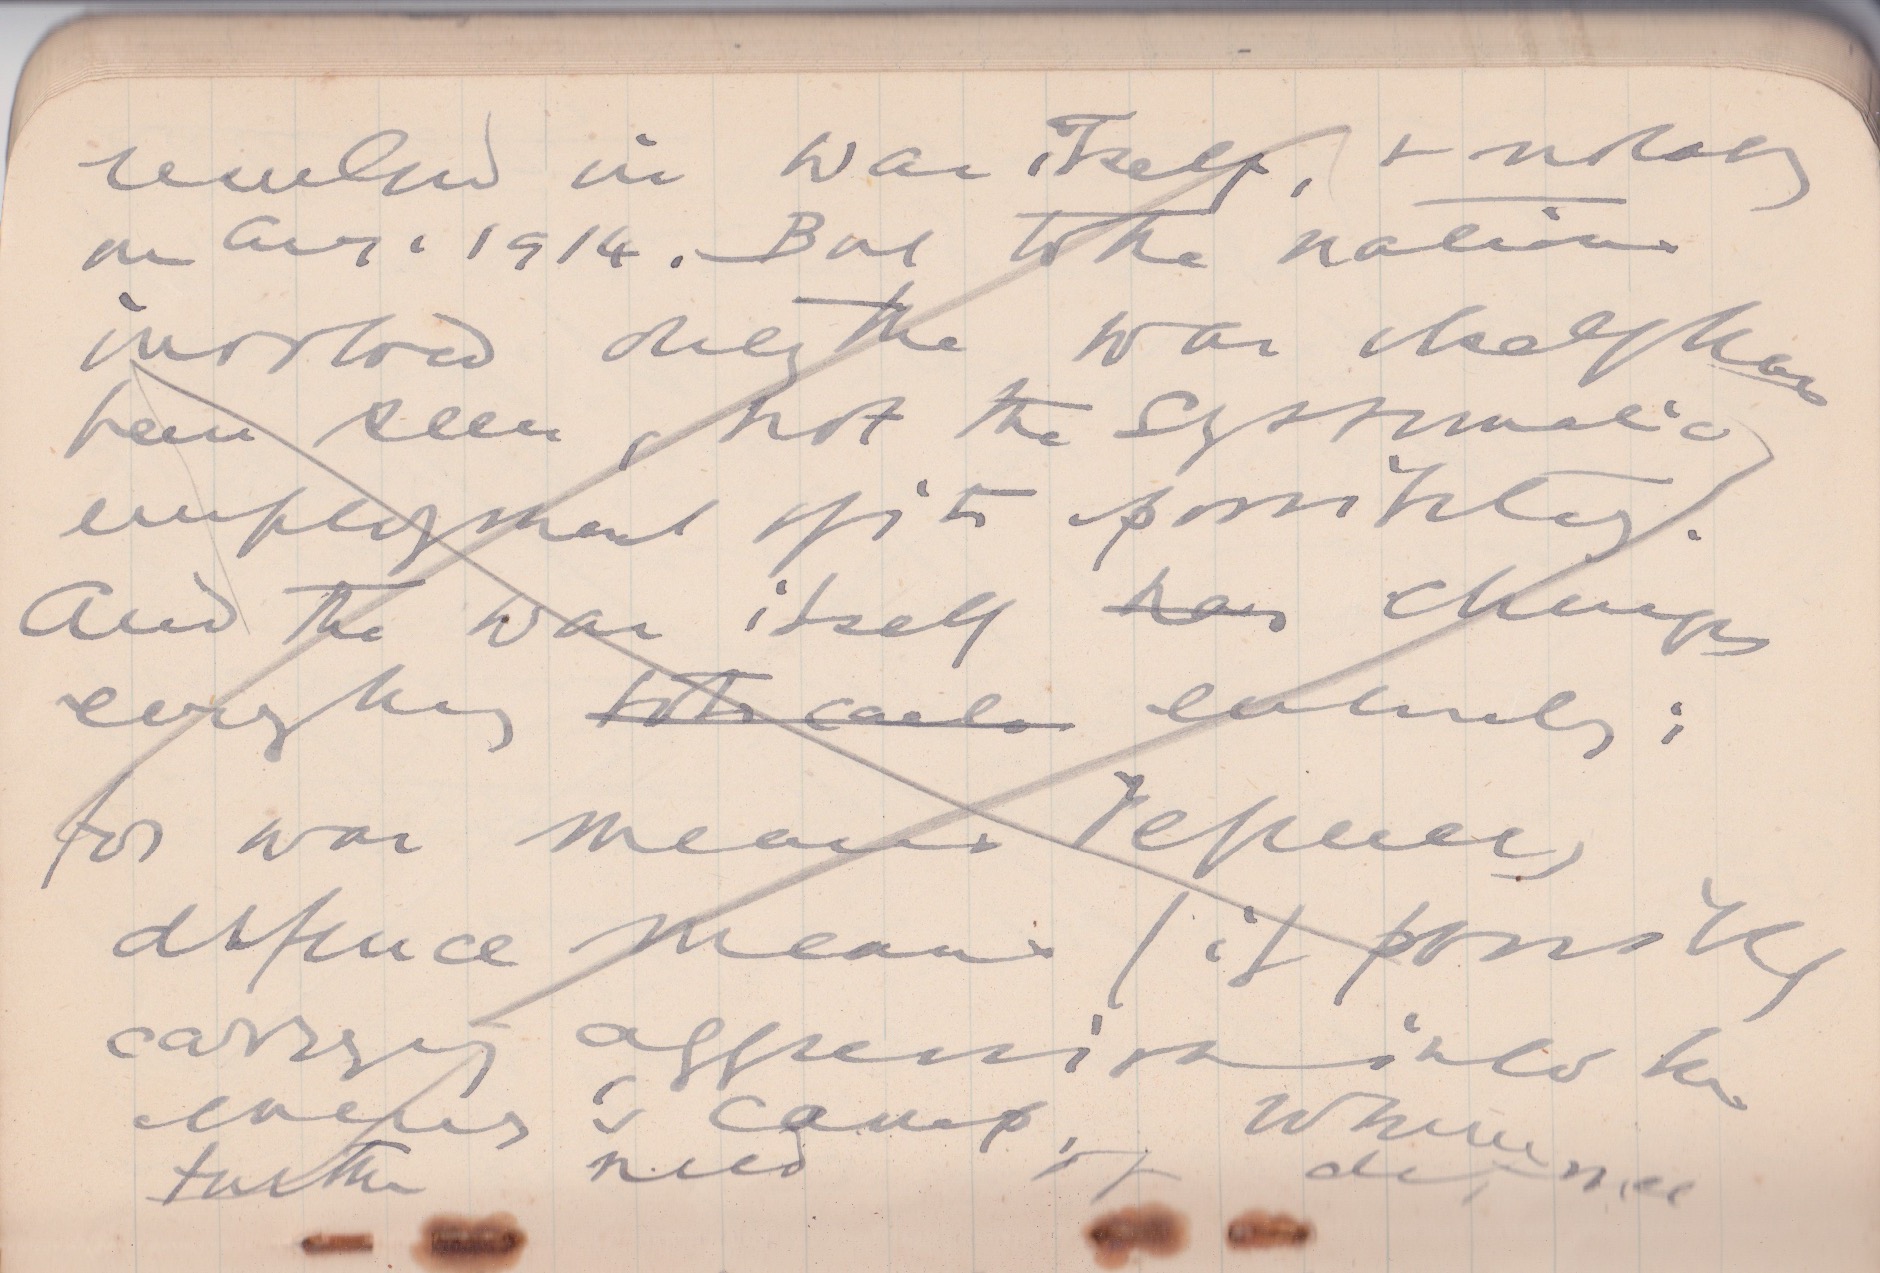 resulted in war itself, & notably
in Aug. 1914. But to the nations
involved only the war itself has
been seen, not the systematic
employment of its possibility.
And the war itself has changes
everything toto caelo entirely;
for war means defence,
defence means (if possible)
carrying aggression into the
enemy's camp,
further need of defence